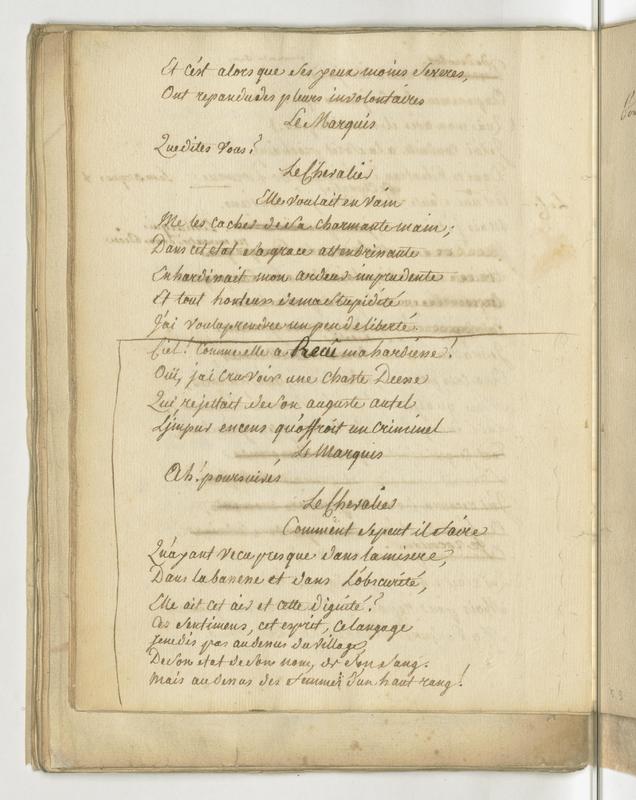 Et c'est alors que ses yeux moins severes,
Ont repandu des pleurs involontaires
Le Marquis
Que dites vous?
Le Chevalier
Elle voulait en vain
Me les cacher de sa charmante main;
Dans cet etat sa grace attendrissante
Enhardissait mon ardeur imprudente
Et tout honteux de ma stupidité
J'ai voulu prendre un peu de liberté.
Ciel! comme elle a Recu ma hardiesse!
Oüi, j'ai cru voir une chaste Deesse
Qui rejettait de son auguste autel
L'impur encens qu'offroit un Criminel
Le Marquis
Ah! poursuivés
Le Chevalier
Comment se peut il faire
Qu'ayant vecu presque dans la misere,
Dans la bassesse et dans l'obscurité,
Elle ait cet air et cette dignité?
Ces sentimens, cet esprit, ce langage
Je ne dis pas au dessus du village,
De son etat de son nom, de son sang.
Mais au dessus des femmes d'un haut rang!